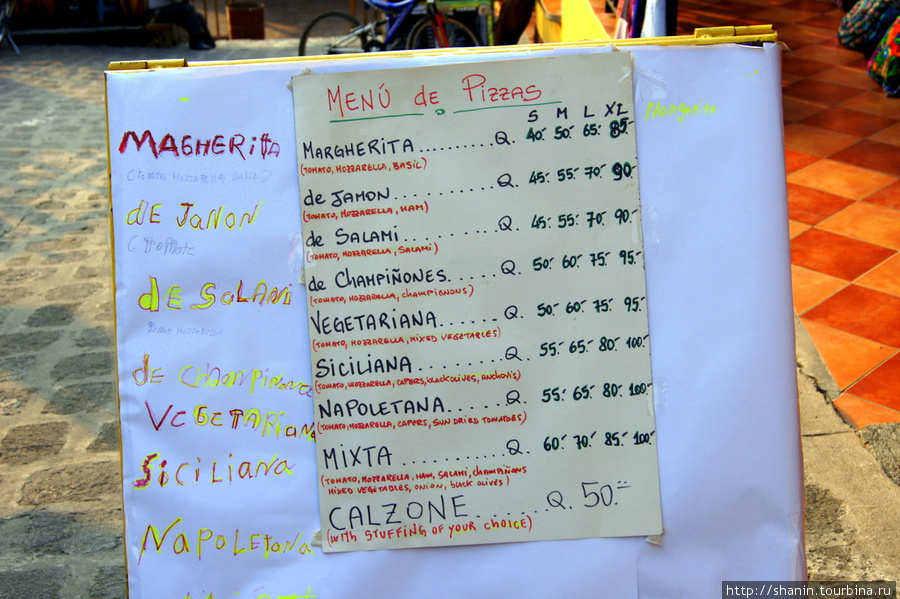 MENÚ de PIZZAS
S M L XL
MARGHERITA.......... Q. 40.- 50.- 65.- 85.-
(TOMATO, MOZZARELLA, BASIL)
de JAMON............ Q. 45.- 55.- 70.- 90.-
(TOMATO, MOZZARELLA, HAM)
de SALAMI........... Q. 45.- 55.- 70.- 90.-
(TOMATO, MOZZARELLA, SALAMI)
de CHAMPIÑONES...... Q. 50.- 60.- 75.- 95.-
(TOMATO, MOZZARELLA, CHAMPIGNONS)
VEGETARIANA...... Q. 50.- 60.- 75.- 95.-
(TOMATO, MOZZARELLA, MIXED VEGETABLES)
SICILIANA.......... Q. 55.- 65.- 80.- 100.-
(TOMATO, MOZZARELLA, CAPERS, BLACK OLIVES, ANCHOVIS)
NAPOLETANA...... Q. 55.- 65.- 80.- 100.-
(TOMATO, MOZZARELLA, CAPERS, SUN DRIED TOMATOES)
MIXTA .......... Q. 60.- 70.- 85.- 100.-
(TOMATO, MOZZARELLA, HAM, SALAMI, CHAMPIÑONS
MIXED VEGETABLES, ONION, BLACK OLIVES)
CALZONE...... Q. 50.=
(WITH STUFFING OF YOUR CHOICE)
MAGHERITA
dE JANON
dE SALAMI
dE CHAMPINONE
VEGETARIANA
SICILIANA
NAPOLETANA
Margarita
http://shanin.tourbina.ru